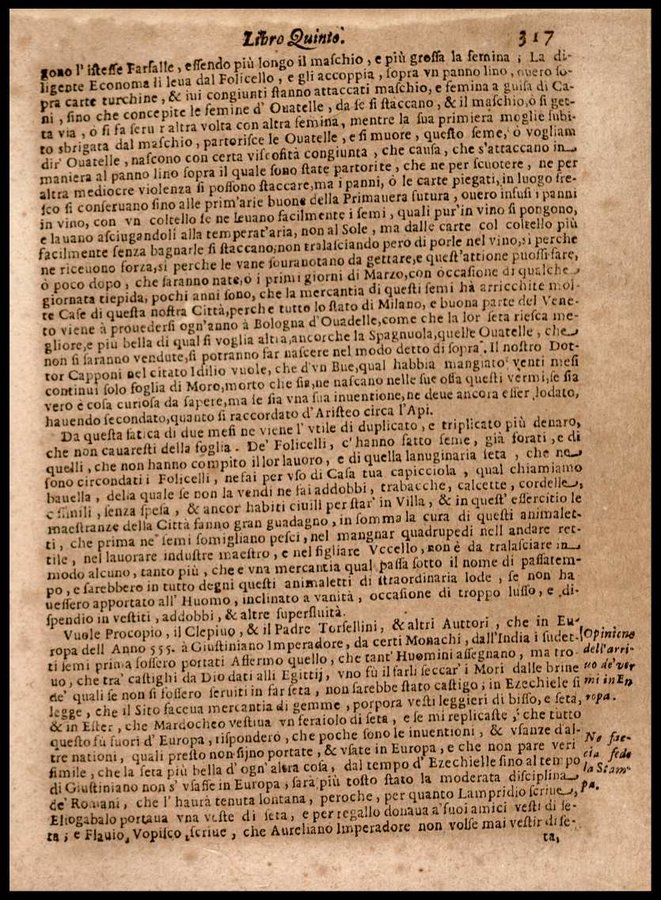 Libro Quinto. 317
gono l'istesse Farfalle, essendo più longo il maschio, e più grossa la femina; La di-
ligente Economa li leua dal Folicello, e gli accoppia, sopra vn panno lino, ouero so-
pra carte turchine, & iui congiunti stanno attaccati maschio, e femina a guisa di Ca-
ni, sino che concepite le femine d'Ouatelle, da se si staccano, & il maschio, ò si get-
ta via, ò si fa seruir altra volta con altra femina, mentre la sua primiera moglie subi-
to sbrigata dal maschio, partorisce le Ouatelle, e si muore, questo seme, ò vogliam
dir' Ouatelle, nascono con certa viscosità congiunta, che causa, che s'attaccano in
maniera al panno lino sopra il quale sono state partorite, che ne per scuotere, ne per
altra mediocre violenza si possono staccare, ma i panni, ò le carte piegati, in luogo fre-
sco si conseruano sino alle prim'arie buone della Primauera futura, ouero infusi i panni
in vino, con vn coltello se ne leuano facilmente i semi, quali pur'in vino si pongono,
e lauano asciugandoli alla temperat'aria, non al Sole, ma dalle carte col coltello più
facilmente senza bagnarle si staccano, non tralasciando pero di porle nel vino, si perche
ne riceuono forza, si perche le vane souranotano da gettare, e quest'attione puossi fare,
ò poco dopo, che saranno nate, ò i primi giorni di Marzo, con occasione di qualche
giornata tiepida, pochi anni sono, che la mercantia di questi semi hà arricchite mol-
te Case di questa nostra Città, perche tutto lo stato di Milano, e buona parte del Vene-
to viene à prouedersi ogn'anno à Bologna d'Ouadelle, come che la lor seta riesca me-
gliore, e più bella di qual si voglia altra, ancorche la Spagnuola, quelle Ouatelle, che
non si saranno vendute, si potranno far nascere nel modo detto di sopra. Il nostro Dot-
tor Capponi nel citato Idilio vuole, che d'vn Bue, qual habbia mangiato venti mesi
continui solo foglia di Moro, morto che sia, ne nascano nelle sue ossa questi vermi, se sia
vero è cosa curiosa da sapere, ma se sia vna sua inuentione, ne deue ancora esser lodato,
hauendo secondato, quanto si raccordato d'Aristeo circa l'Api.
Da questa fatica di due mesi ne viene l'vtile di duplicato, e triplicato più denaro,
che non cauaresti della foglia. De' Folicelli, c'hanno fatto seme, già forati, e di
quelli, che non hanno compito il lor lauoro, e di quella lanuginaria seta, che ne
sono circondati i Folicelli, ne fai per vso di Casa tua capicciola, qual chiamiamo
bauella, della quale se non la vendi ne fai addobbi, trabacche, calcette, cordelle,
e simili, senza spesa, & ancor habiti ciuili per star' in Villa, & in quest' essercitio le
maestranze della Città fanno gran guadagno, in somma la cura di questi animalet-
ti, che prima ne' semi somigliano pesci, nel mangnar quadrupedi nell andare ret-
tile, nel lauorare industre maestro, e nel figliare Vccello, non è da tralasciare in
modo alcuno, tanto più, che e vna mercantia qual passa sotto il nome di passatem-
po, e sarebbero in tutto degni questi animaletti di straordinaria lode, se non ha
uessero apportato all' Huomo, inclinato a vanità, occasione di troppo lusso, e di-
spendio in vestiti, addobbi, & altre superfluità.
Vuole Procopio, il Clepiuo, & il Padre Torsellini, & altri Auttori, che in Eu-
ropa dell' Anno 555. à Giustiniano Imperadore, da certi Monachi, dall'India i sudet-
ti semi prima fossero portati Affermo quello, che tant' Huomini assegnano, ma tro
uo, che tra' castighi da Dio dati alli Egittij, vno fù il farli seccar' i Mori dalle brine
de' quali se non si fossero seruiti in far seta, non sarebbe stato castigo; in Ezechiele si
legge, che il Sito faceua mercantia di gemme, porpora vesti leggieri di bisso, e seta,
& in Ester, che Mardocheo vestiua vn feraiolo di seta, e se mi replicaste, che tutto
questo fù fuori d'Europa, risponderò, che poche sono le inuentioni, & vsanze d'al-
tre nationi, quali presto non sijno portate, & vsate in Europa, e che non pare veri
simile, che la seta più bella d' ogn' altra cosa, dal tempo d' Ezechielle sino al tempo
di Giustiniano non s' vsasse in Europa, sarà più tosto stato la moderata disciplina
de' Romani, che l' haurà tenuta lontana, peroche, per quanto Lampridio scriue,
Eliogabalo portaua vna veste di seta, e per regallo donaua a'suoi amici vesti di se-
ta; e Flauio, Vopisco, scriue, che Aureliano Imperadore non volse mai vestir di se-
ta,
Opinione
dell'arri-
uo de' ver
mi in Eu
ropa.
Ne fac-
cia fede
la Stam-
pa.